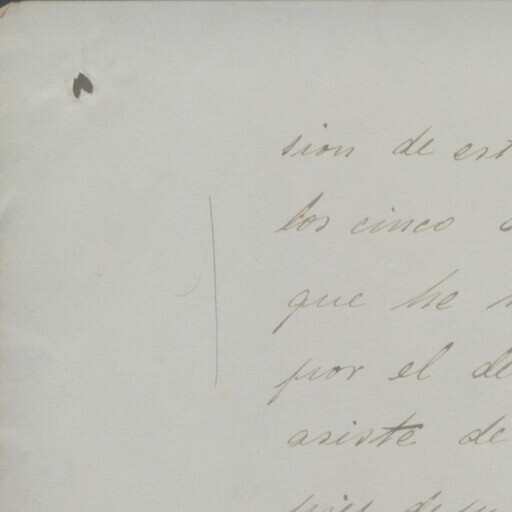 sion de est
los cinco
que he
por el de
asiste de